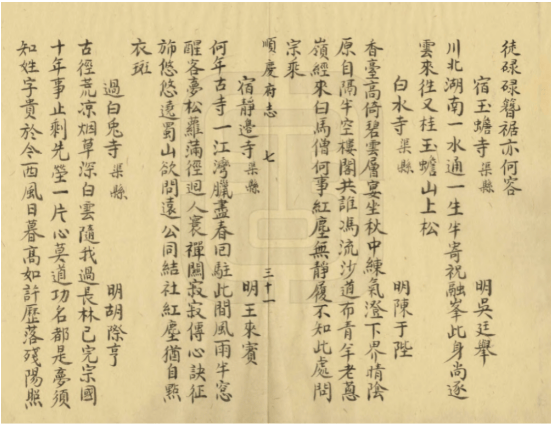 徒碌碌簪裾亦何容
宿玉蟾寺 渠縣 明吳廷舉
川北湖南一水通一生半寄祝融峯此身尚逐
雲來往又挂玉蟾山上松
白水寺 渠縣 明陳于陛
香臺高倚碧雲層宴坐秋中練氣澄下界晴陰
原自隔半空樓閣共誰馮流沙道布青羊老蔥
嶺經來白馬僧何事紅塵無靜履不知此處問
宗乘
順慶府志 七 三十一
宿靜邊寺 渠縣 明王來賓
何年古寺一江灣臘盡春回駐此間風雨半窓
醒客夢松蘿滿徑迴人寰禪關寂寂傳心訣征
斾悠悠遶蜀山欲問遠公同結社紅塵猶自點
衣斑
過白兎寺 渠縣 明胡除亨
古徑荒凉烟草深白雲隨我過長林已完宗國
十年事止剩先塋一片心莫道功名都是夢須
知姓字貴於今西風日暮高如許歷落殘陽照